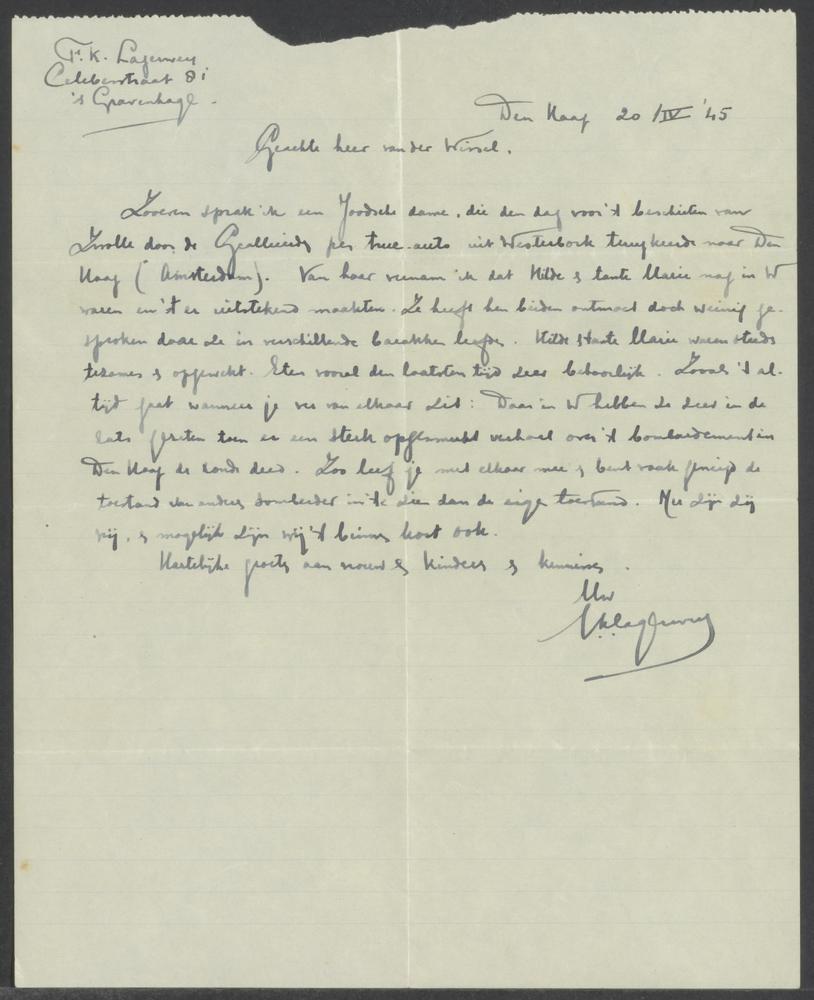 F.K. Lagerwey
Celebesstraat 81
's Gravenhage.
Den Haag 20/IV '45
Geachte heer van der Wissel.
Zooeven sprak ik een Joodsche dame, die den dag voor 't beschieten van
Zwolle door de Geallieerden per truc-auto uit Westerbork terugkeerde naar Den
Haag (Amsterdam). Van haar vernam ik dat Hilde & tante Marie nog in W
waren en 't er uitstekend maakten. Ze heeft hen beiden ontmoet doch weinig ge-
sproken daar ze in verschillende barakken leefden. Hilde & tante Marie waren steeds
tezamen & opgewekt. Eten vooral den laatsten tijd zeer behoorlijk. Zooals 't al-
tijd gaat wanneer je ver van elkaar zit: Daar in W hebben ze zeer in de
rats gezeten toen er een sterk verhaal over 't bombardement in
Den Haag de ronde deed. Zoo leef je met elkaar mee & bent vaak geneigd de
toestand van anderen somberder in te zien dan de eigen toestand. Nu zijn zij
vrij, & mogelijk zijn wij 't binnen kort ook.
Hartelijke groeten aan vrouw & kinderen & kennissen.
Uw
FKLagerwey